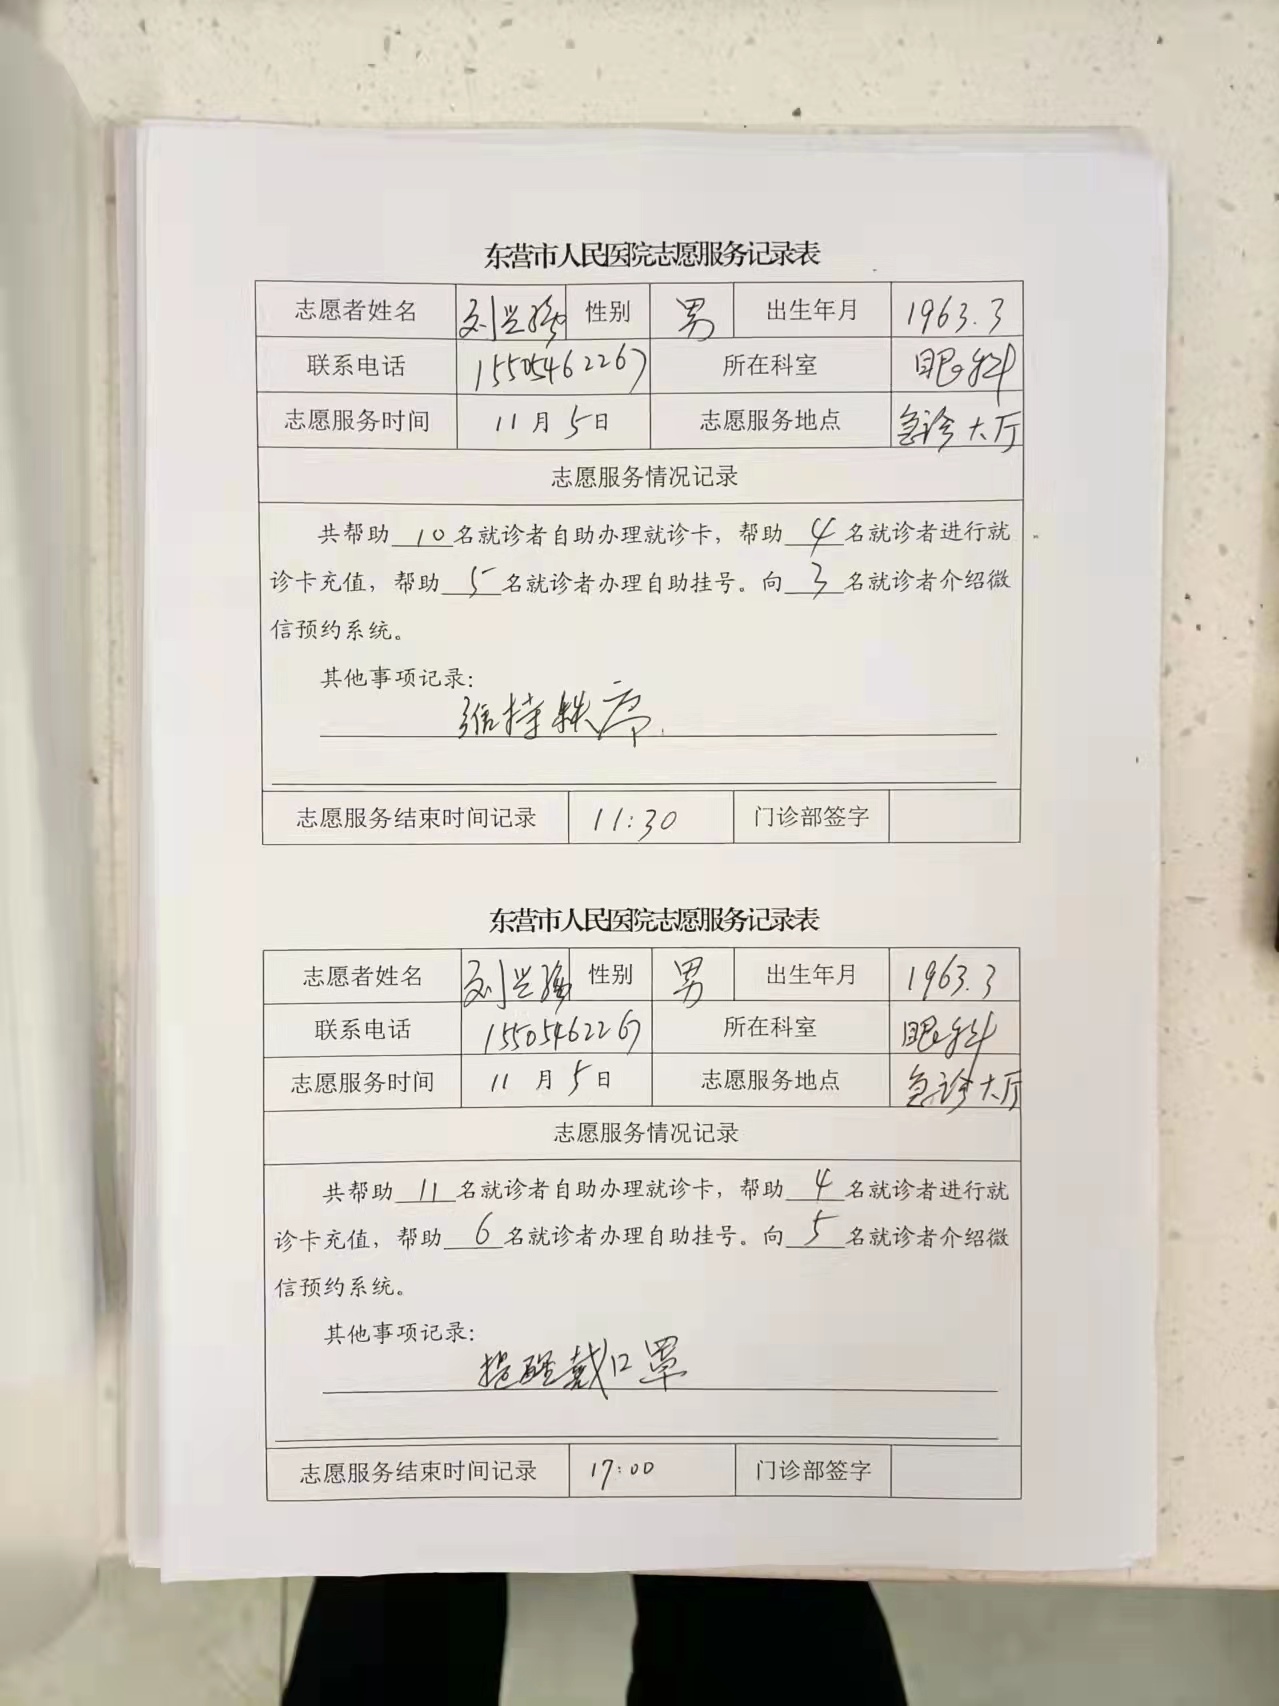 东营市人民医院志愿服务记录表
志愿者姓名 刘兴 性别 男 出生年月 1963.3
联系电话 15505462267 所在科室 眼科
志愿服务时间 11月5日 志愿服务地点 急诊大厅
志愿服务情况记录
共帮助10名就诊者自助办理就诊卡，帮助4名就诊者进行就
诊卡充值，帮助5名就诊者办理自助挂号。向3名就诊者介绍微
信预约系统。
其他事项记录：
维持秩序.
志愿服务结束时间记录 11:30 门诊部签字
东营市人民医院志愿服务记录表
志愿者姓名 刘兴 性别 男 出生年月 1963.3
联系电话 15505462267 所在科室 眼科
志愿服务时间 11月5日 志愿服务地点 急诊大厅
志愿服务情况记录
共帮助11名就诊者自助办理就诊卡，帮助4名就诊者进行就
诊卡充值，帮助6名就诊者办理自助挂号。向5名就诊者介绍微
信预约系统。
其他事项记录：
提醒戴口罩
志愿服务结束时间记录 17:00 门诊部签字